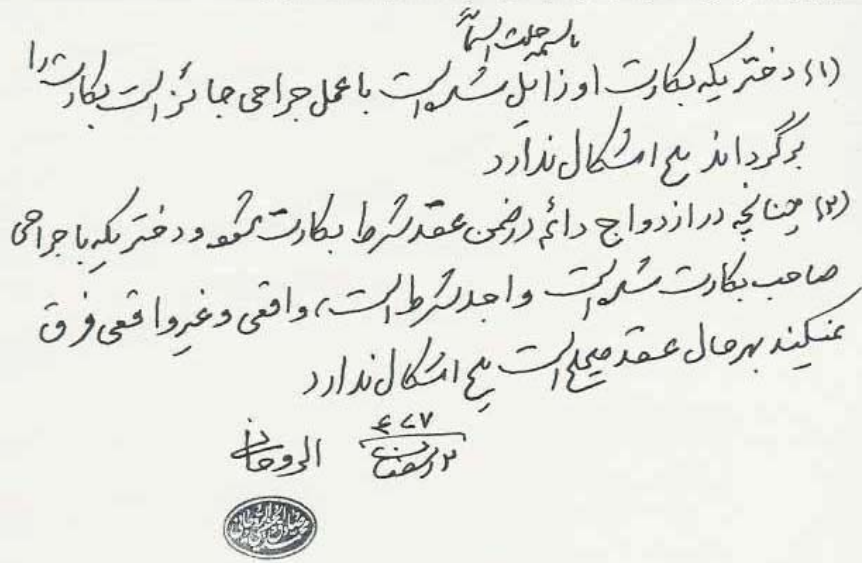 باسمه جلت اسمائه
(۱) دختریکه بکارت او زایل شده است با عمل جراحی جائز است بکارت را
برگرداند هیچ اشکال ندارد
(۲) چنانچه در ازدواج دائم در ضمن عقد شرط بکارت شود و دختریکه با جراحی
صاحب بکارت شده است واجد شرط است، واقعی و غیر واقعی فرق
نمیکند بهر حال عقد صحیح است هیچ اشکال ندارد
الروحانی